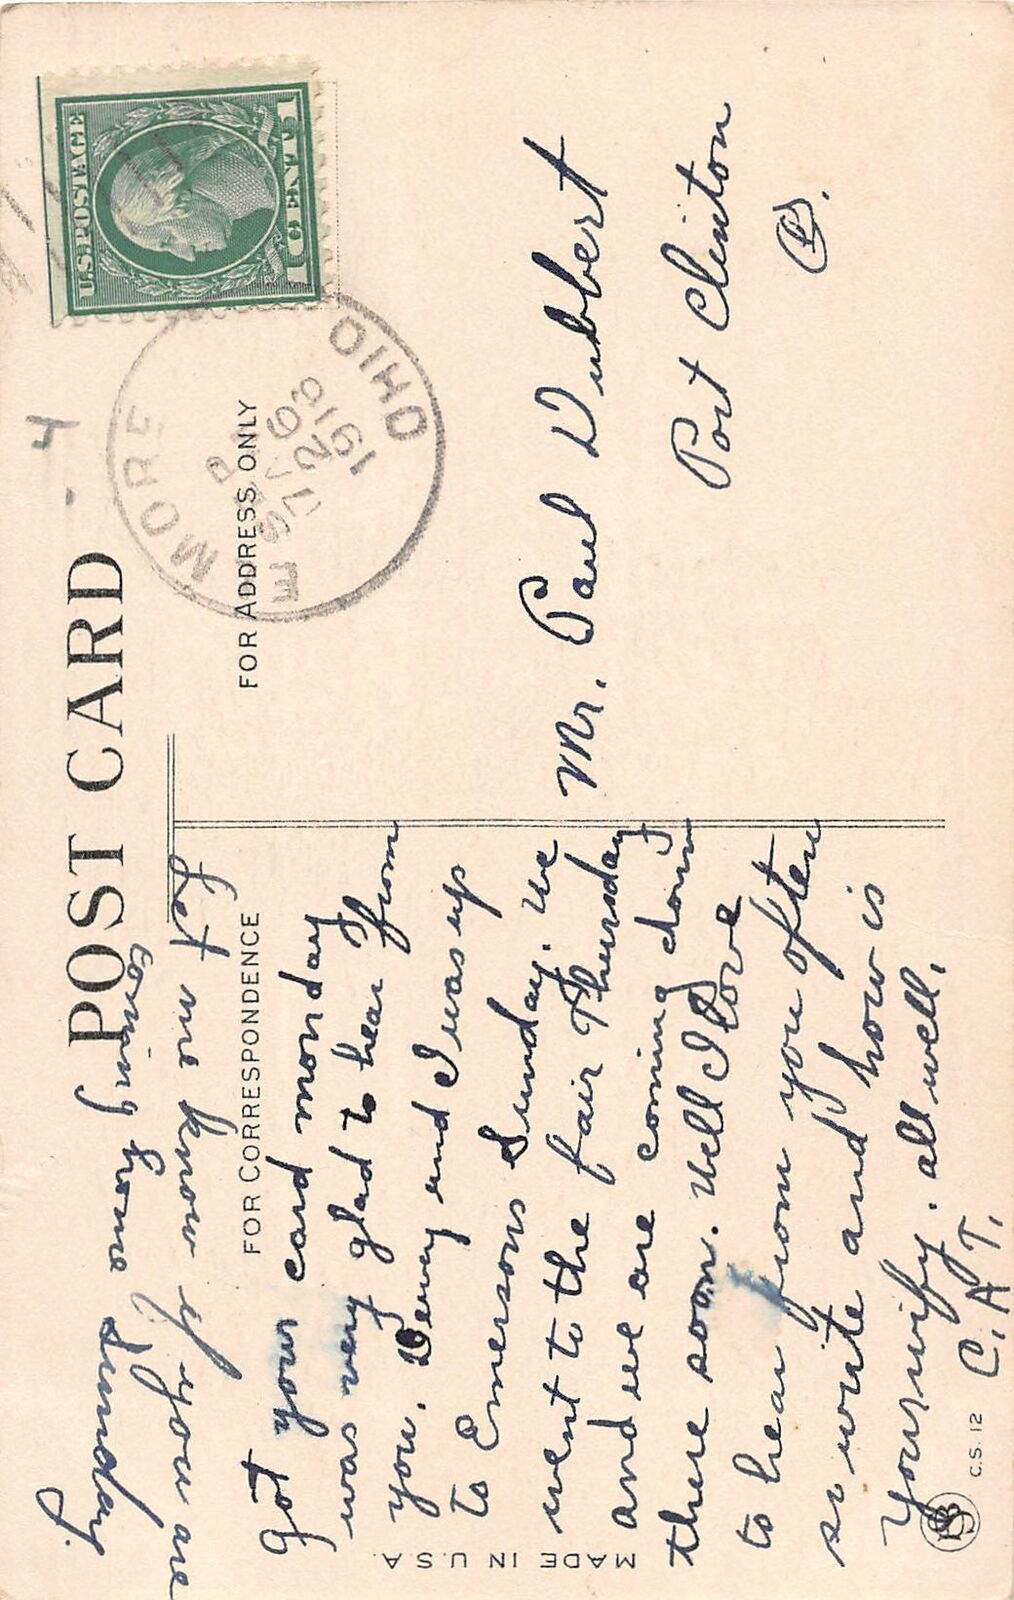 POST CARD
FOR ADDRESS ONLY
FOR CORRESPONDENCE
U.S. POSTAGE
1 CENT 1
OHIO
SEP
26
1916
4
Mr. Paul Dubbert
Port Clinton
O.
coming home Sunday.
Let me know if you are
Got your card monday
was very glad to hear from
you. Dewey and I was up
to Emersons Sunday. We
went to the fair Thursday
and we are coming down
there soon. Well I love
to hear from you often
so write and how is
your wify. all well.
C. A. T.
C.S. 12
MADE IN U.S.A.